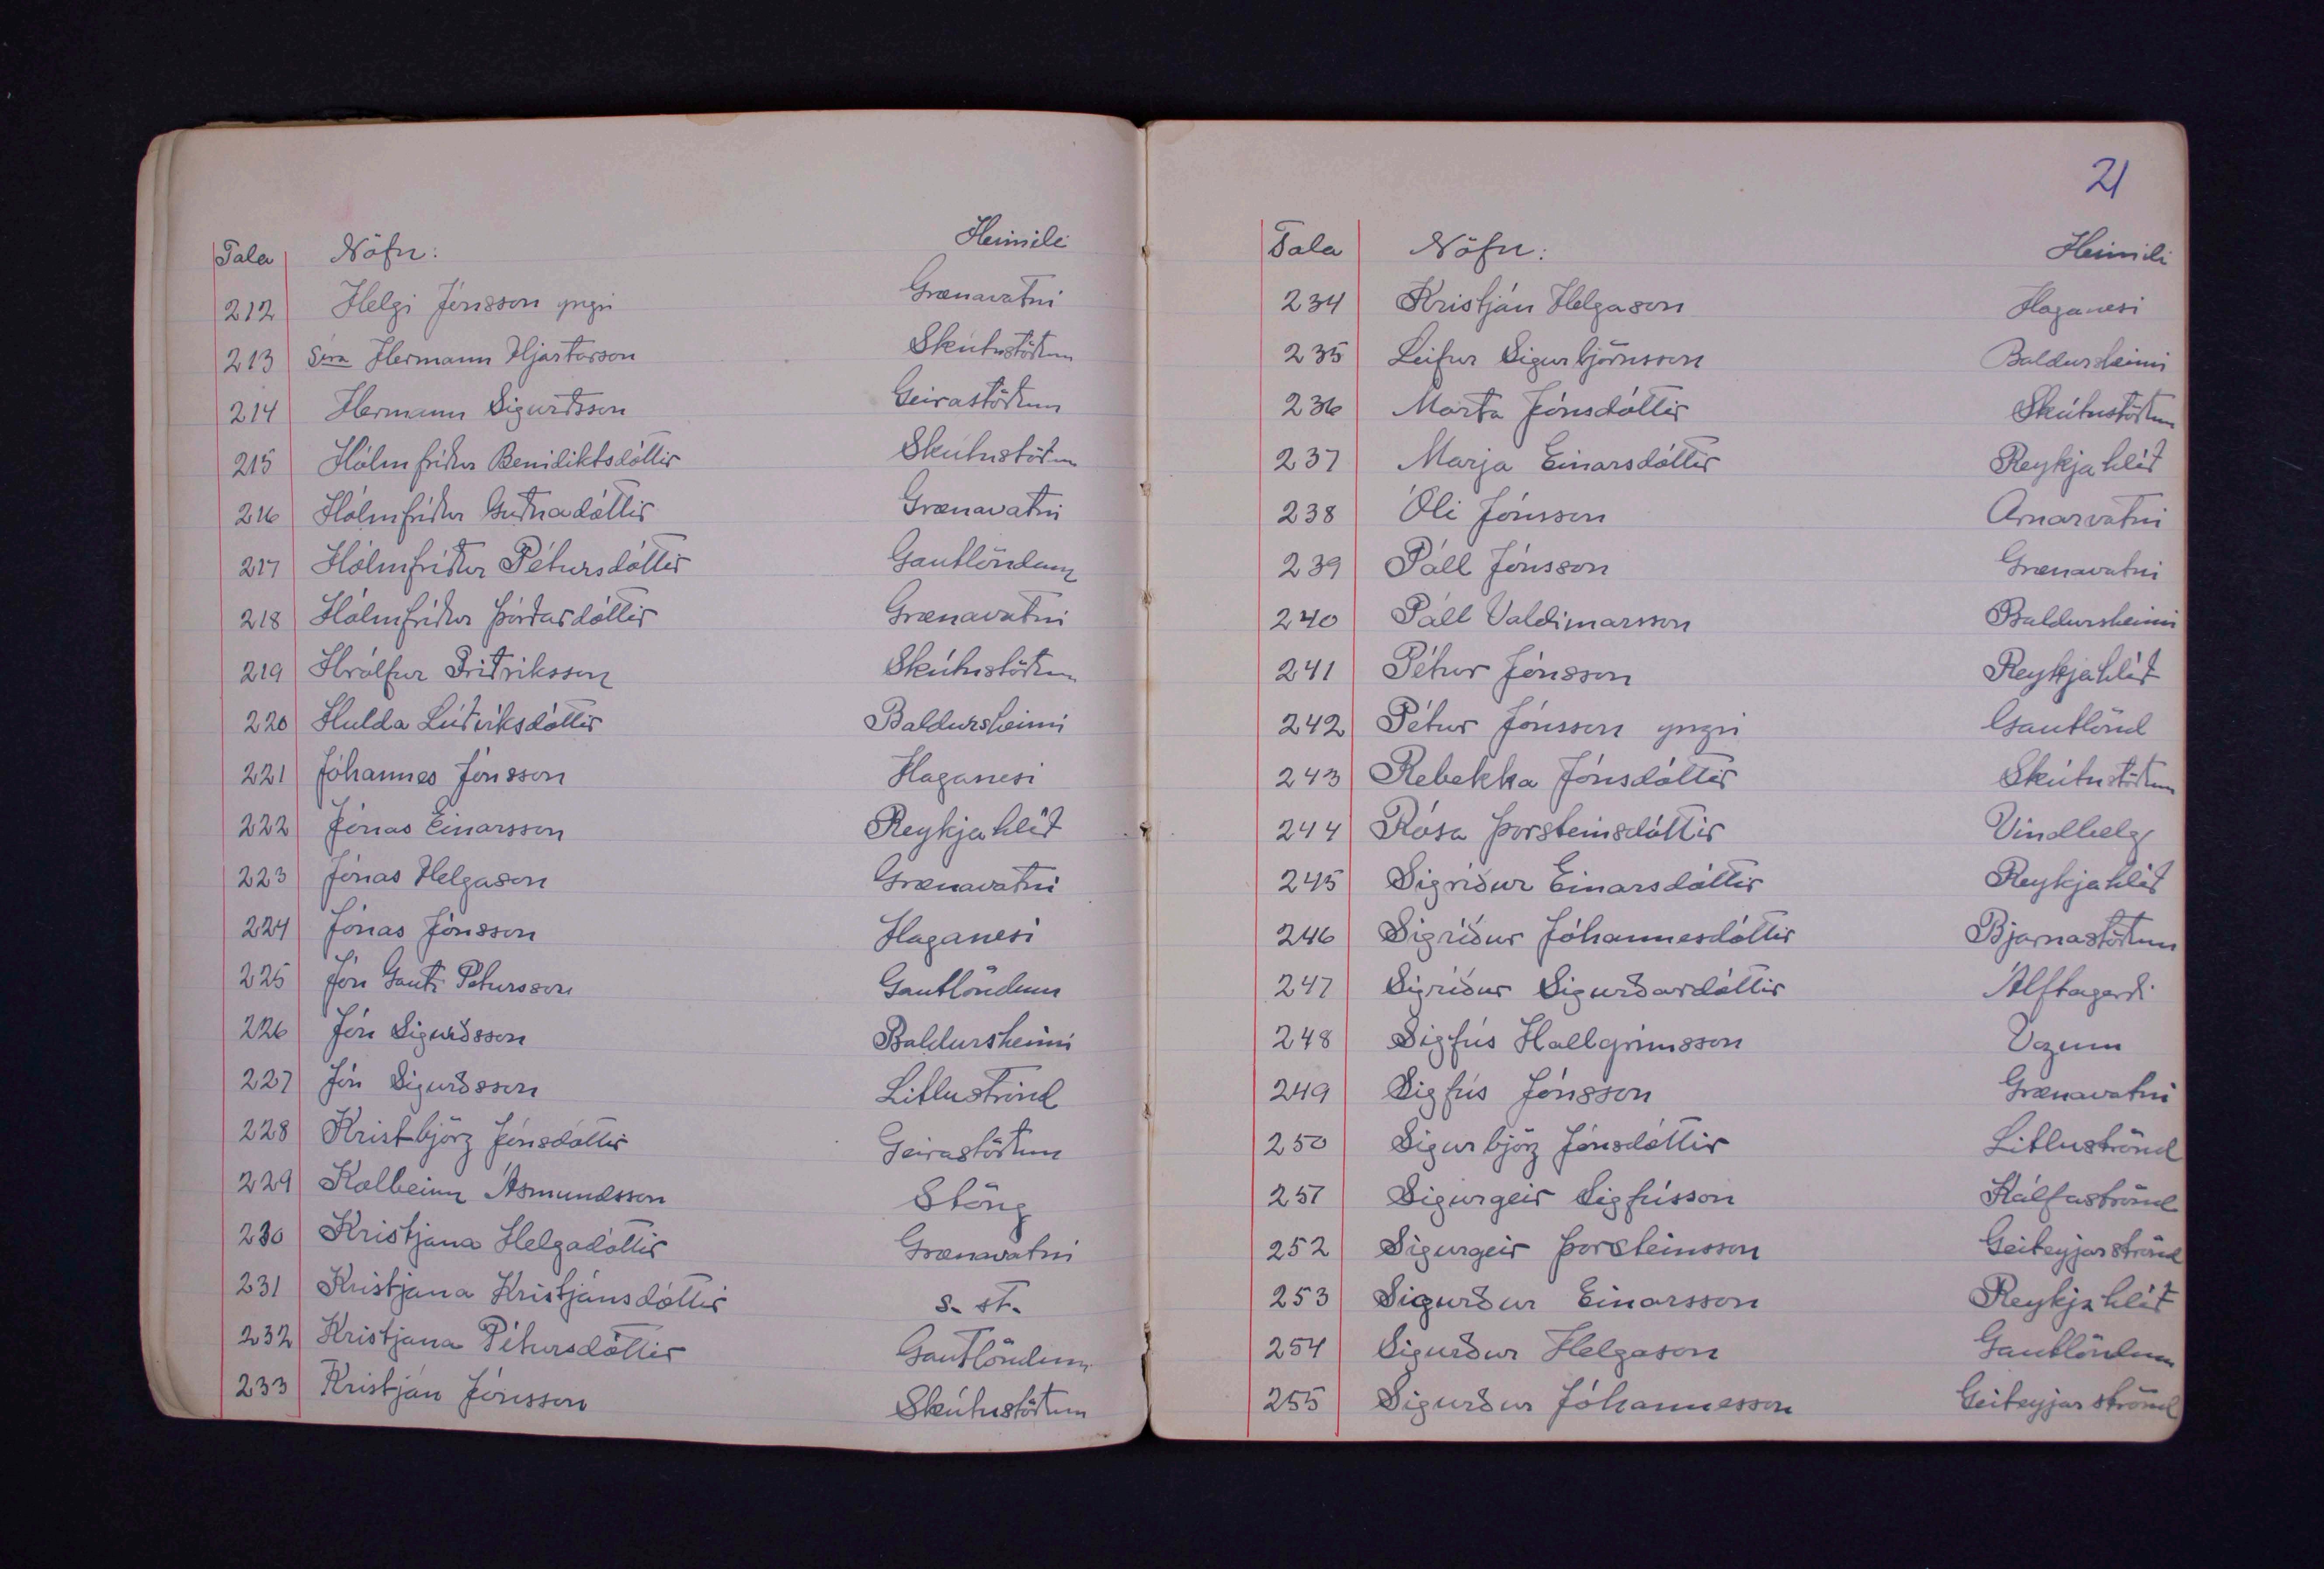 Tala Nöfn: Heimili
212 Helgi Jónsson yngri Grænavatni
213 Séra Hermann Hjartarson Skútustöðum
214 Hermann Sigurðsson Geirastöðum
215 Hólmfríður Benidiktsdóttir Skútustöðum
216 Hólmfríður Guðnadóttir Grænavatni
217 Hólmfríður Pétursdóttir Gautlöndum
218 Hólmfríður Þórðardóttir Grænavatni
219 Hrólfur Friðriksson Skútustöðum
220 Hulda Lúðviksdóttir Baldursheimi
221 Jóhannes Jónsson Haganesi
222 Jónas Einarsson Reykjahlíð
223 Jónas Helgason Grænavatni
224 Jónas Jónsson Haganesi
225 Jón Gauti Pétursson Gautlöndum
226 Jón Sigurðsson Baldursheimi
227 Jón Sigurðsson Litluströnd
228 Kristbjörg Jónsdóttir Geirastöðum
229 Kolbeinn Ásmundsson Stöng
230 Kristjana Helgadóttir Grænavatni
231 Kristjana Kristjánsdóttir s. st.
232 Kristjana Pétursdóttir Gautlöndum
233 Kristján Jónsson Skútustöðum
21
Tala Nöfn: Heimili
234 Kristján Helgason Haganesi
235 Leifur Sigurbjörnsson Baldursheimi
236 Marta Jónsdóttir Skútustöðum
237 Marja Einarsdóttir Reykjahlíð
238 Óli Jónsson Arnarvatni
239 Páll Jónsson Grænavatni
240 Páll Valdimarsson Baldursheimi
241 Pétur Jónsson Reykjahlíð
242 Pétur Jónsson yngri Gautlönd
243 Rebekka Jónsdóttir Skútustöðum
244 Rósa Þorsteinsdóttir Vindbelg
245 Sigríður Einarsdóttir Reykjahlíð
246 Sigríður Jóhannesdóttir Bjarnastöðum
247 Sigríður Sigurðardóttir Álftagerði
248 Sigfús Hallgrímsson Vogum
249 Sigfús Jónsson Grænavatni
250 Sigurbjörg Jónsdóttir Litluströnd
251 Sigurgeir Sigfússon Kálfaströnd
252 Sigurgeir Þorsteinsson Geiteyjarströnd
253 Sigurður Einarsson Reykjahlíð
254 Sigurður Helgason Gautlöndum
255 Sigurður Jóhannesson Geiteyjarströnd